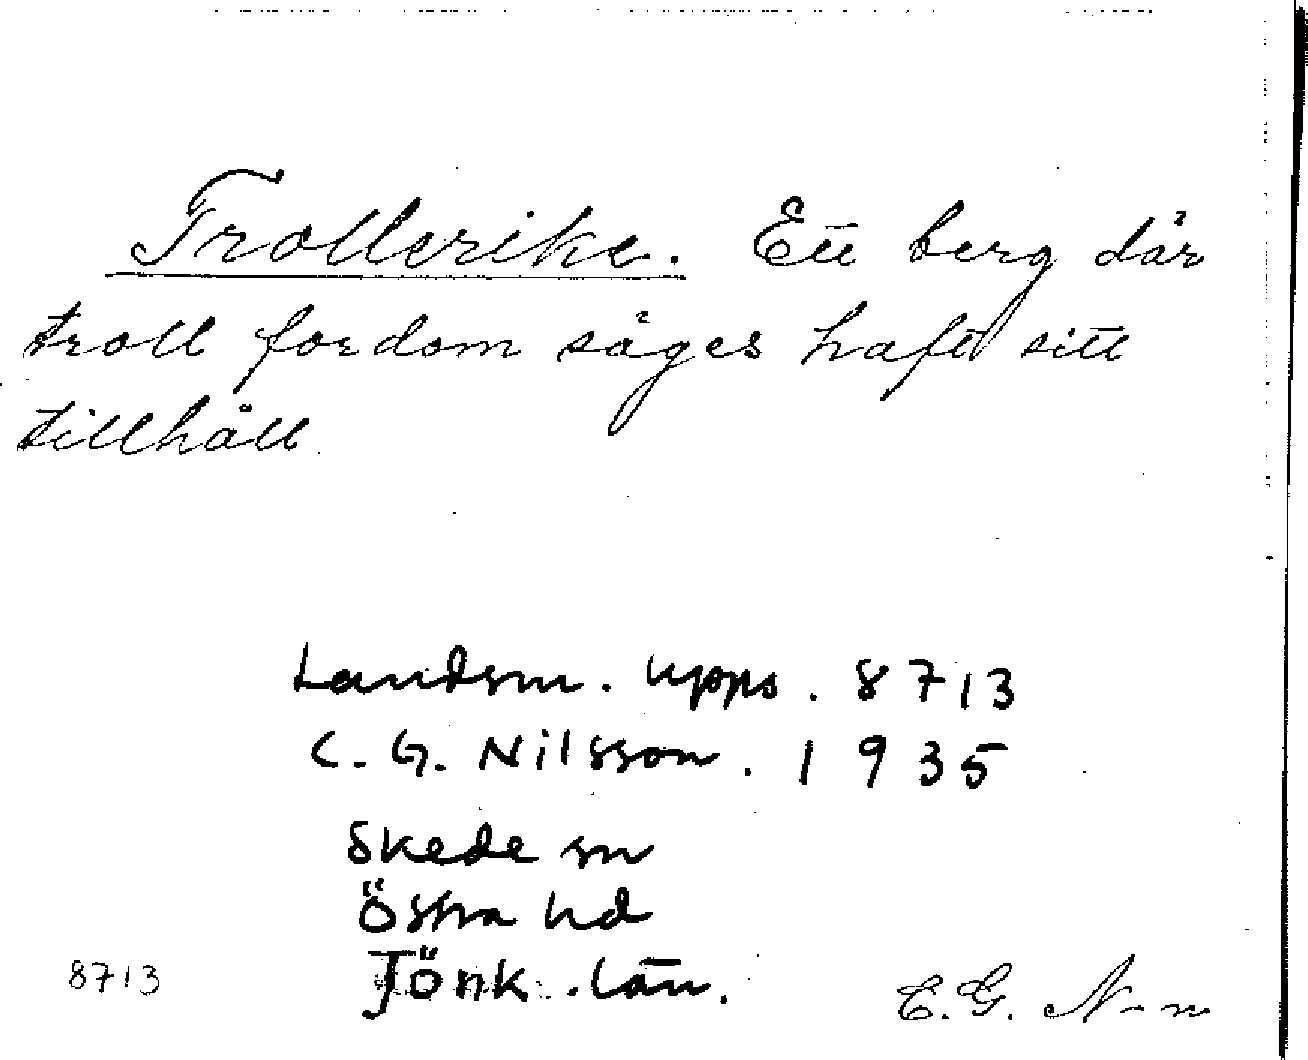 Trollerike. Ett berg där
troll fordom säges haft sitt
tillhåll.
Landsm. Upps. 8713
C. G. Nilsson. 1935
Skede sn
Östra hd
Jönk. län.
8713
C. G. N-n